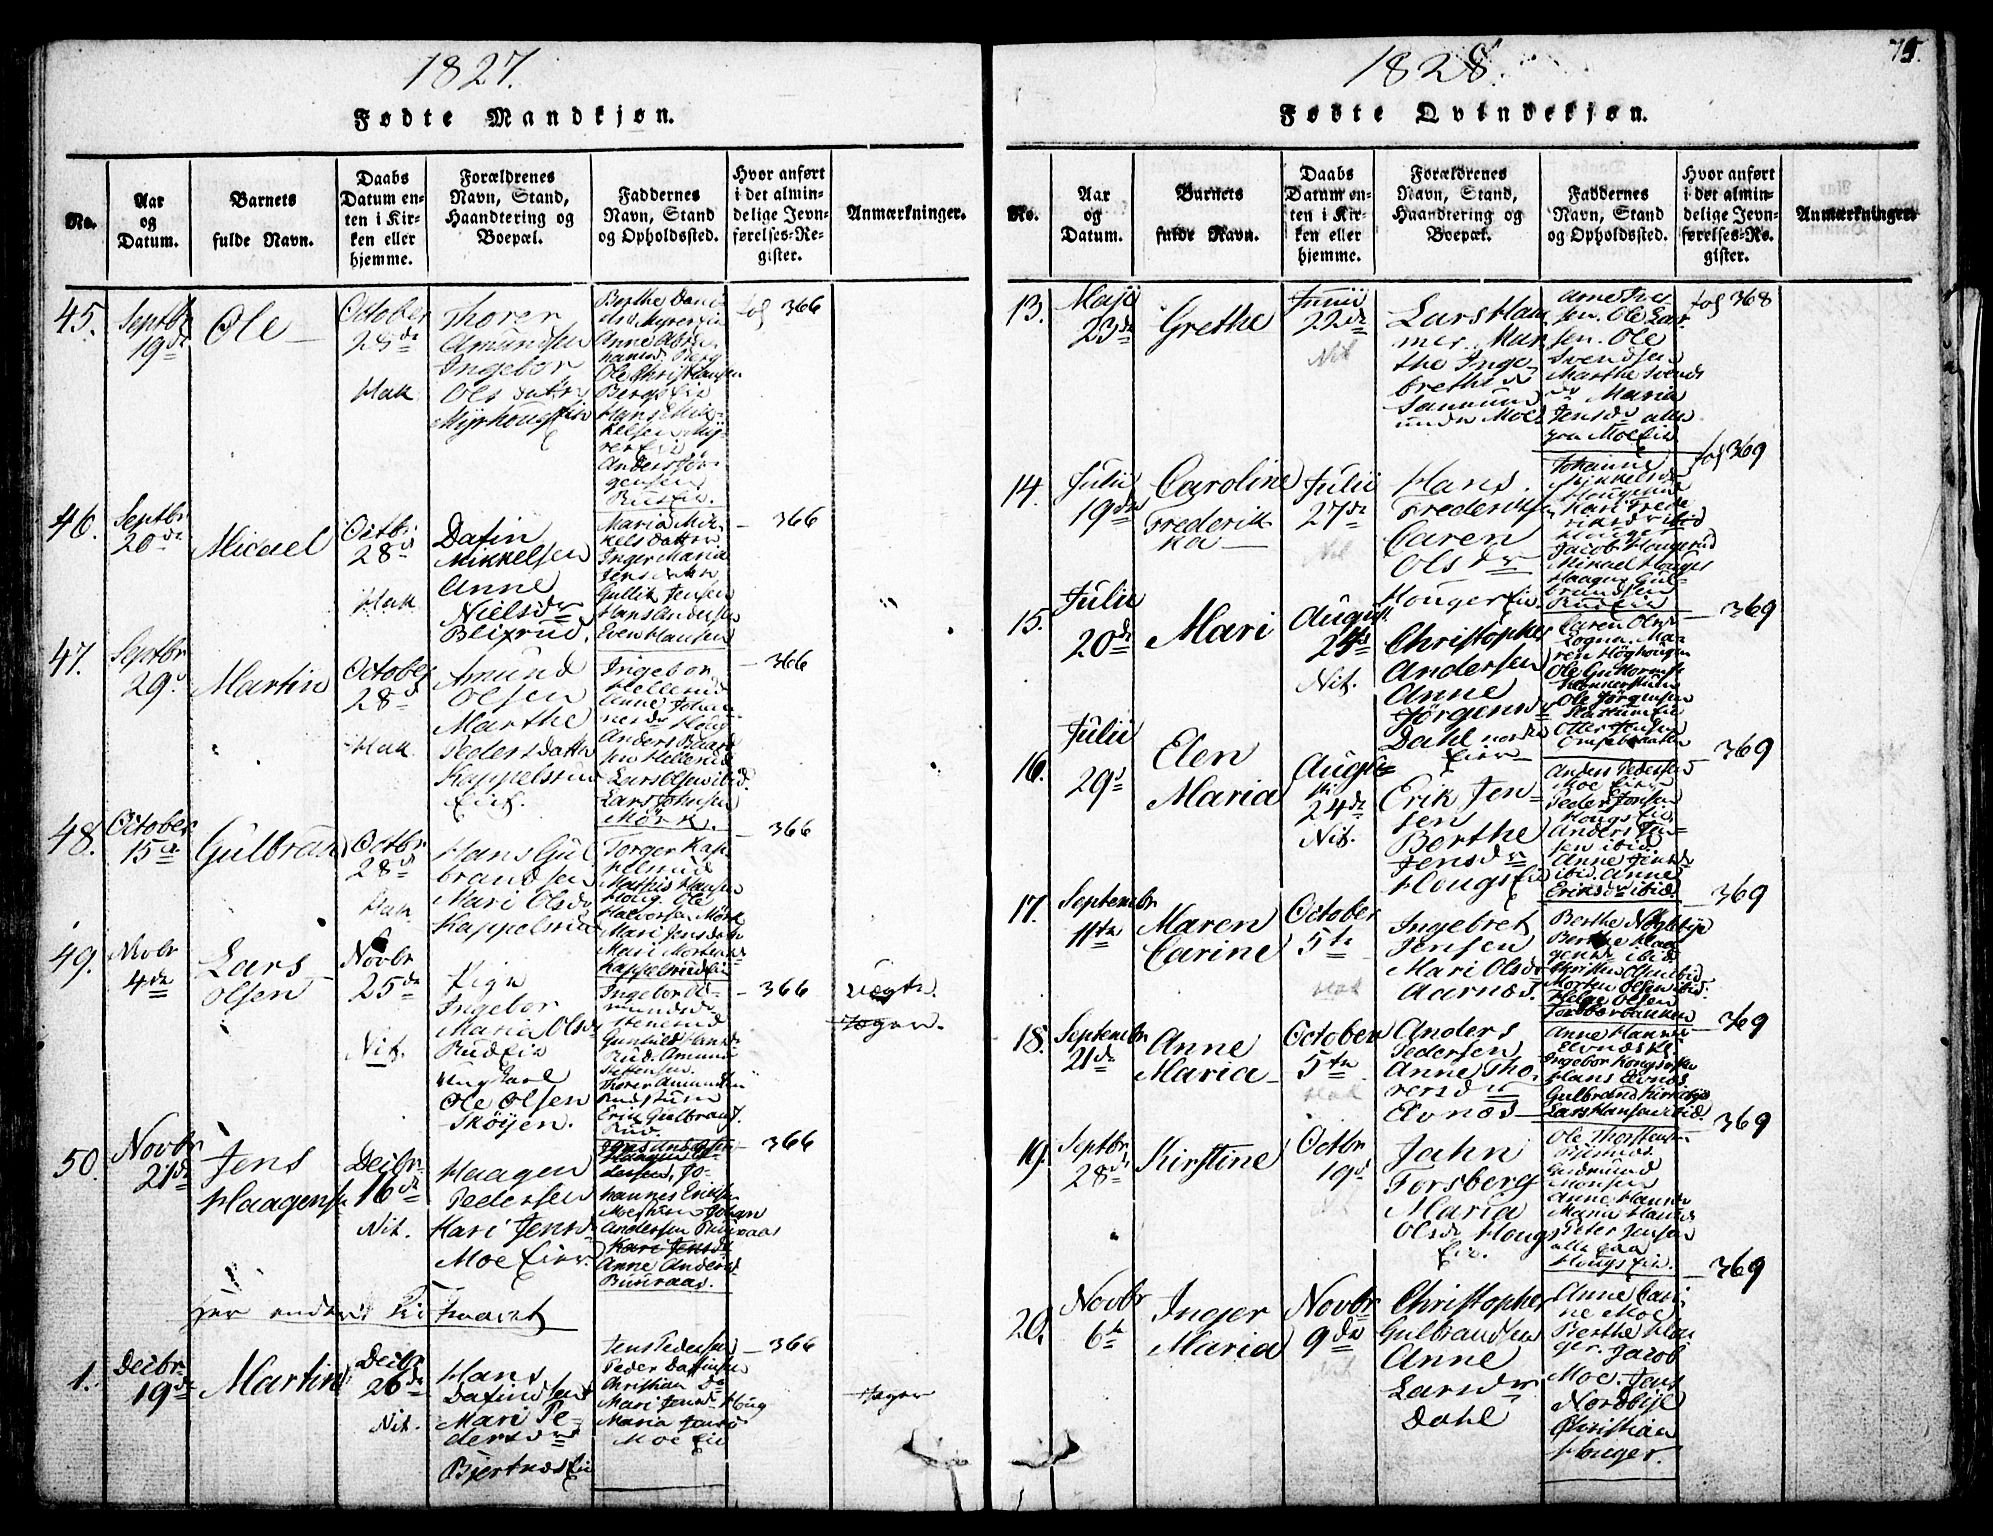 1827.
Fødte Mandkjøn.
No.
Aar og Datum.
Barnets fulde Navn.
Daabs Datum enten i Kirken eller hjemme.
Forældrenes Navn, Stand, Haandtering og Boepæl.
Faddernes Navn, Stand og Opholdssted.
Hvor anført i det almindelige Jevnførelses-Register.
Anmærkninger.
45.
Septbr
19de
Ole
October
28de
Hak
Thorer
Amundsen
Ingebor
Ols datr
Berthe Dani
Ole Christiansen
fol 366
46.
Septbr
20de
Micael
Octbr
28d
Hak
Dafin
Mikkelsen
Anne
Nielsdr
Blixrud.
Maria Mik
kelsdatter
Inger Maria
Jensdatr
Gullik Jensen
Hans Andersen
Even Hansen
366
47.
Septbr
29.
Martin
October
28d
Hak
Amund
Olsen
Marthe
Pedersdatter
Kappelsrud
Eie.
Ingebor
Hellerud
Anne Johan
nesdr Houg
Anders Baard
sen Hellerud
Lars Olsen ibid.
Lars Johnsen
Mörk.
366
48.
October
15de
Gulbran
Octbr
28d
Hak
Hans Gul
brandsen
Mari Olsdr
Kappelsrud
Torger Kap
pelsrud
Mathis Hansen
Houg. Ole
Halvorsen Mörk
Mari Jensdatr
Kappelsrud Eie
366
49.
Novbr
4de
Lars
Olsen
Novbr
25de
Nit.
Pige
Ingebor
Maria Olsdr
Rud Eie
Ungkarl
Ole Olsen
Sköyen.
Ingebor A
mundsdr
Stenerud
Rud. Amund
Steffensen.
Thorer Amundsen
Erik Gulbrands.
Rud
366
Uægte.
50
Novbr
21de
Jens
Haagens
Decbr
16de
Nit.
Haagen
Pedersen
Mari Jensd
Moe Eier.
Jo-
hannes Eriksen
Moestuen Johan
Andersen
Kari Jensdr
Anne Andersd
366
Her endes Kirkeaaret
1.
Decbr
19de
Martin
Decbr
26de
Nit.
Hans
Dafindsen
Mari Pe-
dersdr
Bjertnæs Eie
Jens Pedersen
Peder Dafinsen
Christian Do
Mari Jensd Houg
Maria Jensd
Moe Eie
366
75.
1828.
Fødte Qvindekjøn.
No.
Aar og Datum.
Barnets fulde Navn.
Daabs Datum enten i Kirken eller hjemme.
Forældrenes Navn, Stand, Haandtering og Boepæl.
Faddernes Navn, Stand og Opholdssted.
Hvor anført i det almindelige Jevnførelses-Re. gister.
Anmærkninger.
13.
Maji
23de
Grethe
Junii
22de
Nit
Lars Ham
mer. Mar
the Inge-
brethsd
Moe
Arne Iver
sen. Ole Lar
sen. Ole
Svendsen
Marthe Svends
dr Maria
Jensdr alle
paa Moe Eie
fol 368
14.
Julii
19de
Caroline
Frederik
ka
Julii
27de
Nit
Hans.
Frederiksen
Caren
Olsdr
Houger Eie.
Johanne
Mikkelsd
Jacob Hougerud
Mikael Houger
Haagen Gul-
brandsen
Rud Eie
fol 369
15.
Julii
20de
Mari
August
24de
Nit.
Christopher
Andersen
Anne
Jörgensdr
Dahl nordre
Eier
Caren Olsdr
Sogna. Ma-
ren Höghougen
Ole Guttormsen
Ole Jörgensen
369
16.
Julii
29d
Elen
Maria
Augu-
sti
24de
Nit.
Erik Jen-
sen
Berthe
Jensdr
Hougs Eie
Anders Pedersen
Moe Eier
Peder Jonsen
Hougs Eie
Anders Jen-
sen ibid.
Anne Jensd
ibid. Anne
Eriksdr ibid
369
17.
Septembr
11te
Maren
Carine
October
5te
Hak
Ingebret
Jensen
Mari Olsdr
Aarnæs.
Berthe Nögleby
Berthe Haa
gensdr ibid.
Christen Olsen ibid.
Morten Olsen ibid.
Helge Olsen
369
18.
Septembr
21de
Anne
Maria
October
5te
Hak
Anders
Pedersen
Anne Tho-
rersdr
Elvnæs
Anne Hansdr
Elvnæs Ei.
Hans Elvnæs.
Gulbrand Kirkeby
Lars Hansen ibid.
369
19.
Septbr
28de
Kirstine
Octbr
19d
Jahn
Forsberg
Maria
Olsd Hougs
Eie.
Ole Thorstens
Gudmund
Monsen
Anne Hansdr
Maria Hansd
Peter Jensen
alle paa
Hougs Eie.
369
20.
Novbr
6te
Inger
Maria
Novbr
9de
Christopher
Gulbrandsen
Anne
Larsdr
Dahl
Anne Cari
ne Moe
Berthe Hou
ger. Jacob
Moe. Jens
Nordbye
Christian
Houger.
369